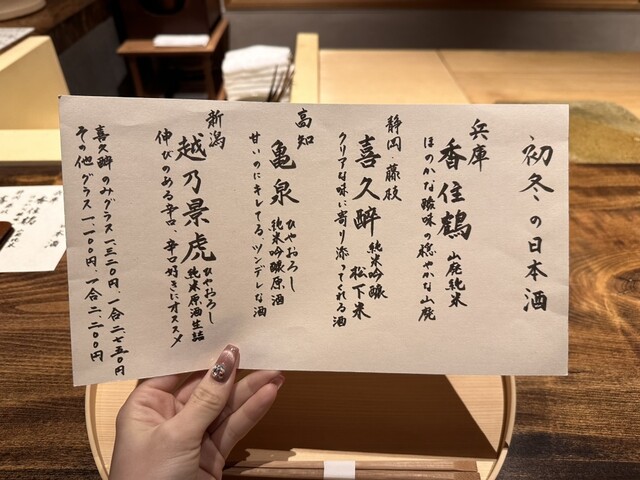 初冬の日本酒
兵庫
香住鶴 山廃純米
ほのかな酸味の穏やかな山廃
静岡・藤枝
喜久酔 純米吟醸 松下米
クリアな味に寄り添ってくれる酒
高知
亀泉 ひやおろし 純米吟醸原酒
甘いのにキレてる、ツンデレな酒
新潟
越乃景虎 ひやおろし 純米原酒生詰
伸びのある辛口、辛口好きにオススメ
喜久酔のみグラス一、三二〇円、一合二、七五〇円
その他グラス一、一〇〇円、一合二、二〇〇円